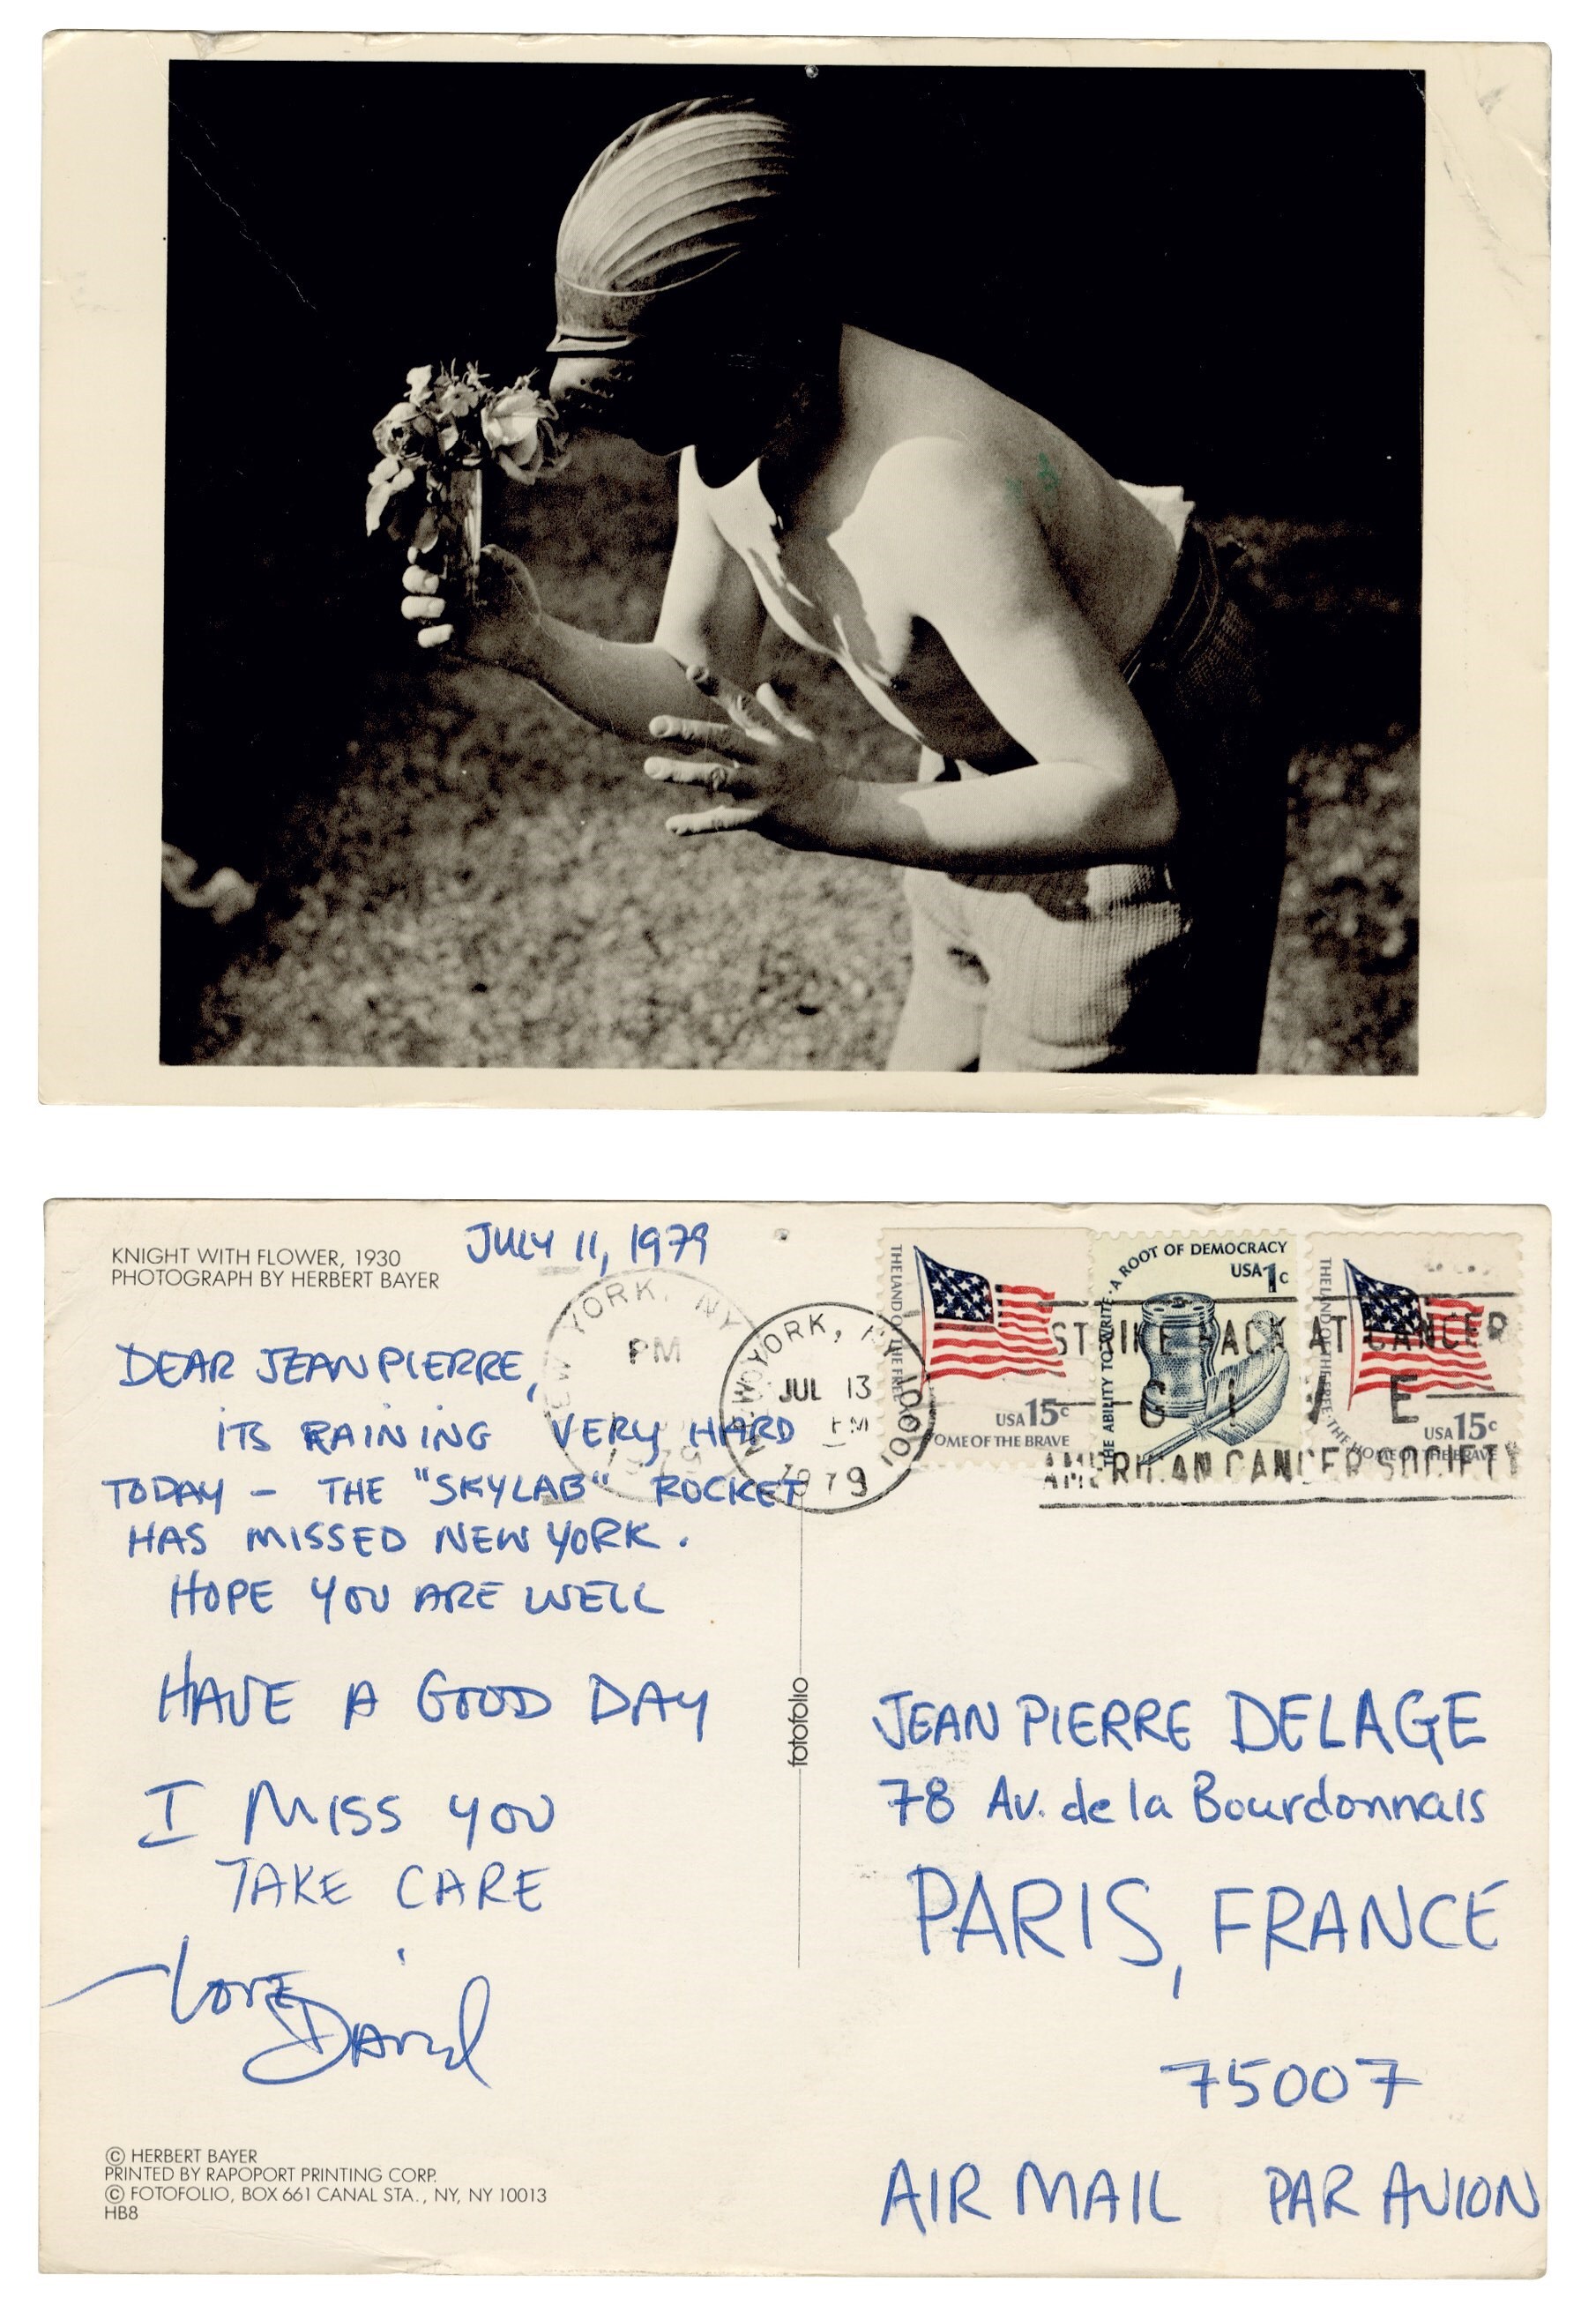 KNIGHT WITH FLOWER, 1930
PHOTOGRAPH BY HERBERT BAYER
JULY 11, 1979
DEAR JEAN PIERRE,
ITS RAINING VERY HARD
TODAY – THE "SKYLAB" ROCKET
HAS MISSED NEW YORK.
HOPE YOU ARE WELL
HAVE A GOOD DAY
I MISS YOU
TAKE CARE
LOVE
DAVID
© HERBERT BAYER
PRINTED BY RAPOPORT PRINTING CORP.
© FOTOFOLIO, BOX 661 CANAL STA., NY, NY 10013
HB8
fotofolio
YORK, NY
PM
YORK,
10001
JUL 13
PM
1979
THE LAND OF THE FREE
HOME OF THE BRAVE
USA 15c
THE ABILITY TO WRITE · A ROOT OF DEMOCRACY
USA 1c
THE LAND OF THE FREE · THE HOME OF THE BRAVE
USA 15c
STRIKE BACK AT CANCER
GIVE
AMERICAN CANCER SOCIETY
JEAN PIERRE DELAGE
78 Av. de la Bourdonnais
PARIS, FRANCE
75007
AIR MAIL PAR AVION